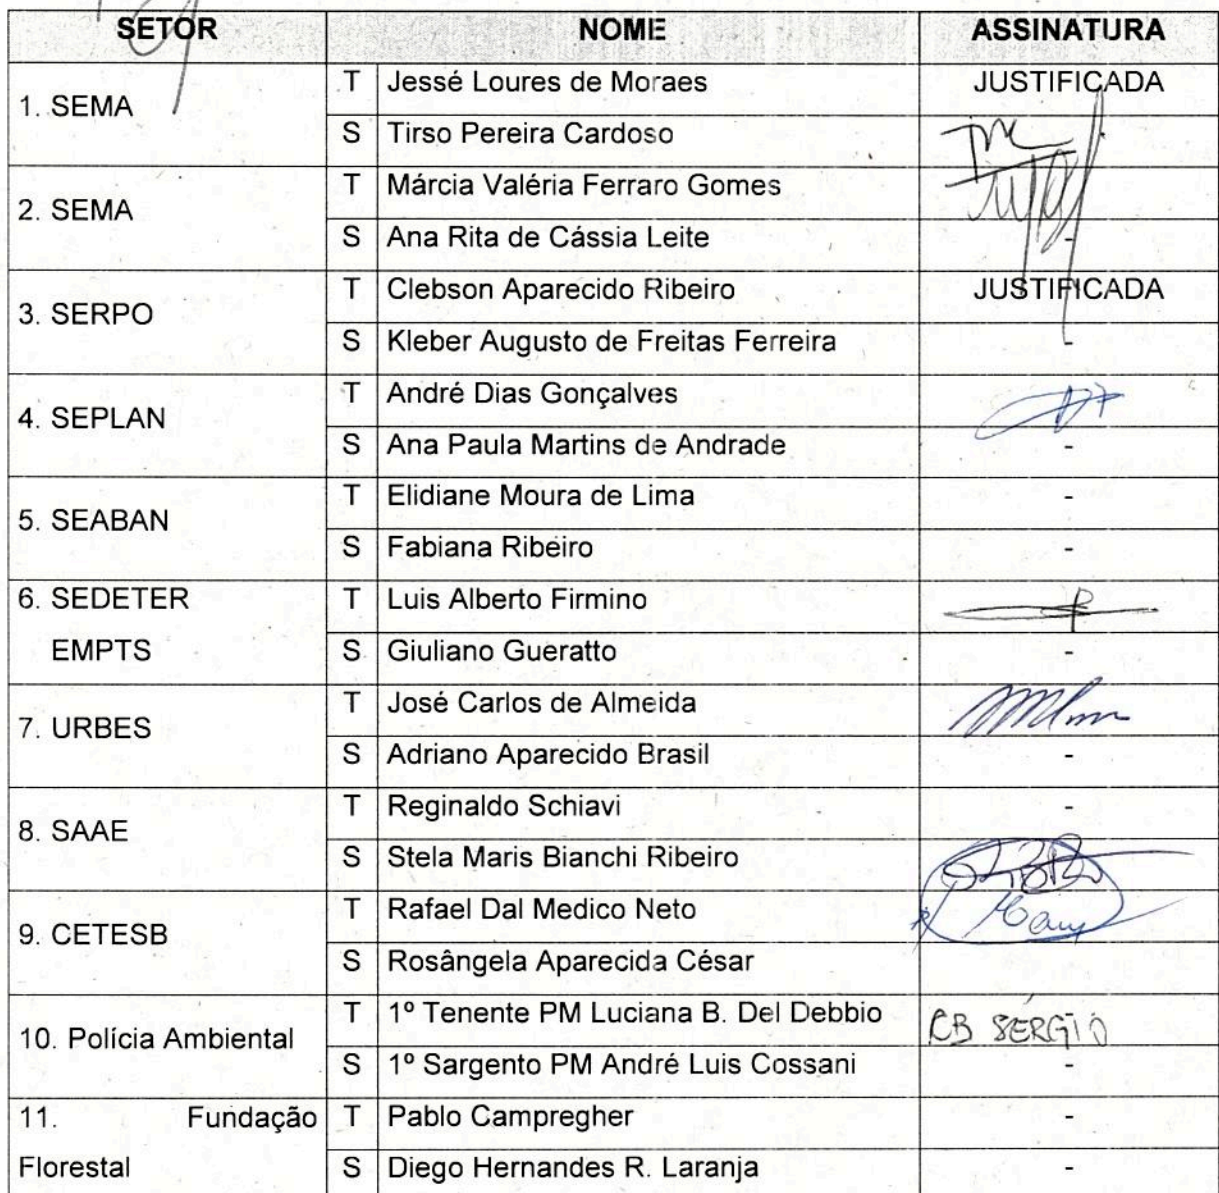 SETOR NOME ASSINATURA
1. SEMA
T Jessé Loures de Moraes JUSTIFICADA
S Tirso Pereira Cardoso
2. SEMA
T Márcia Valéria Ferraro Gomes
S Ana Rita de Cássia Leite -
3. SERPO
T Clebson Aparecido Ribeiro JUSTIFICADA
S Kleber Augusto de Freitas Ferreira -
4. SEPLAN
T André Dias Gonçalves
S Ana Paula Martins de Andrade -
5. SEABAN
T Elidiane Moura de Lima -
S Fabiana Ribeiro -
6. SEDETER
EMPTS
T Luis Alberto Firmino
S Giuliano Gueratto -
7. URBES
T José Carlos de Almeida
S Adriano Aparecido Brasil -
8. SAAE
T Reginaldo Schiavi -
S Stela Maris Bianchi Ribeiro
9. CETESB
T Rafael Dal Medico Neto
S Rosângela Aparecida César -
10. Polícia Ambiental
T 1º Tenente PM Luciana B. Del Debbio CB SÉRGIO
S 1º Sargento PM André Luis Cossani -
11. Fundação
Florestal
T Pablo Campregher -
S Diego Hernandes R. Laranja -